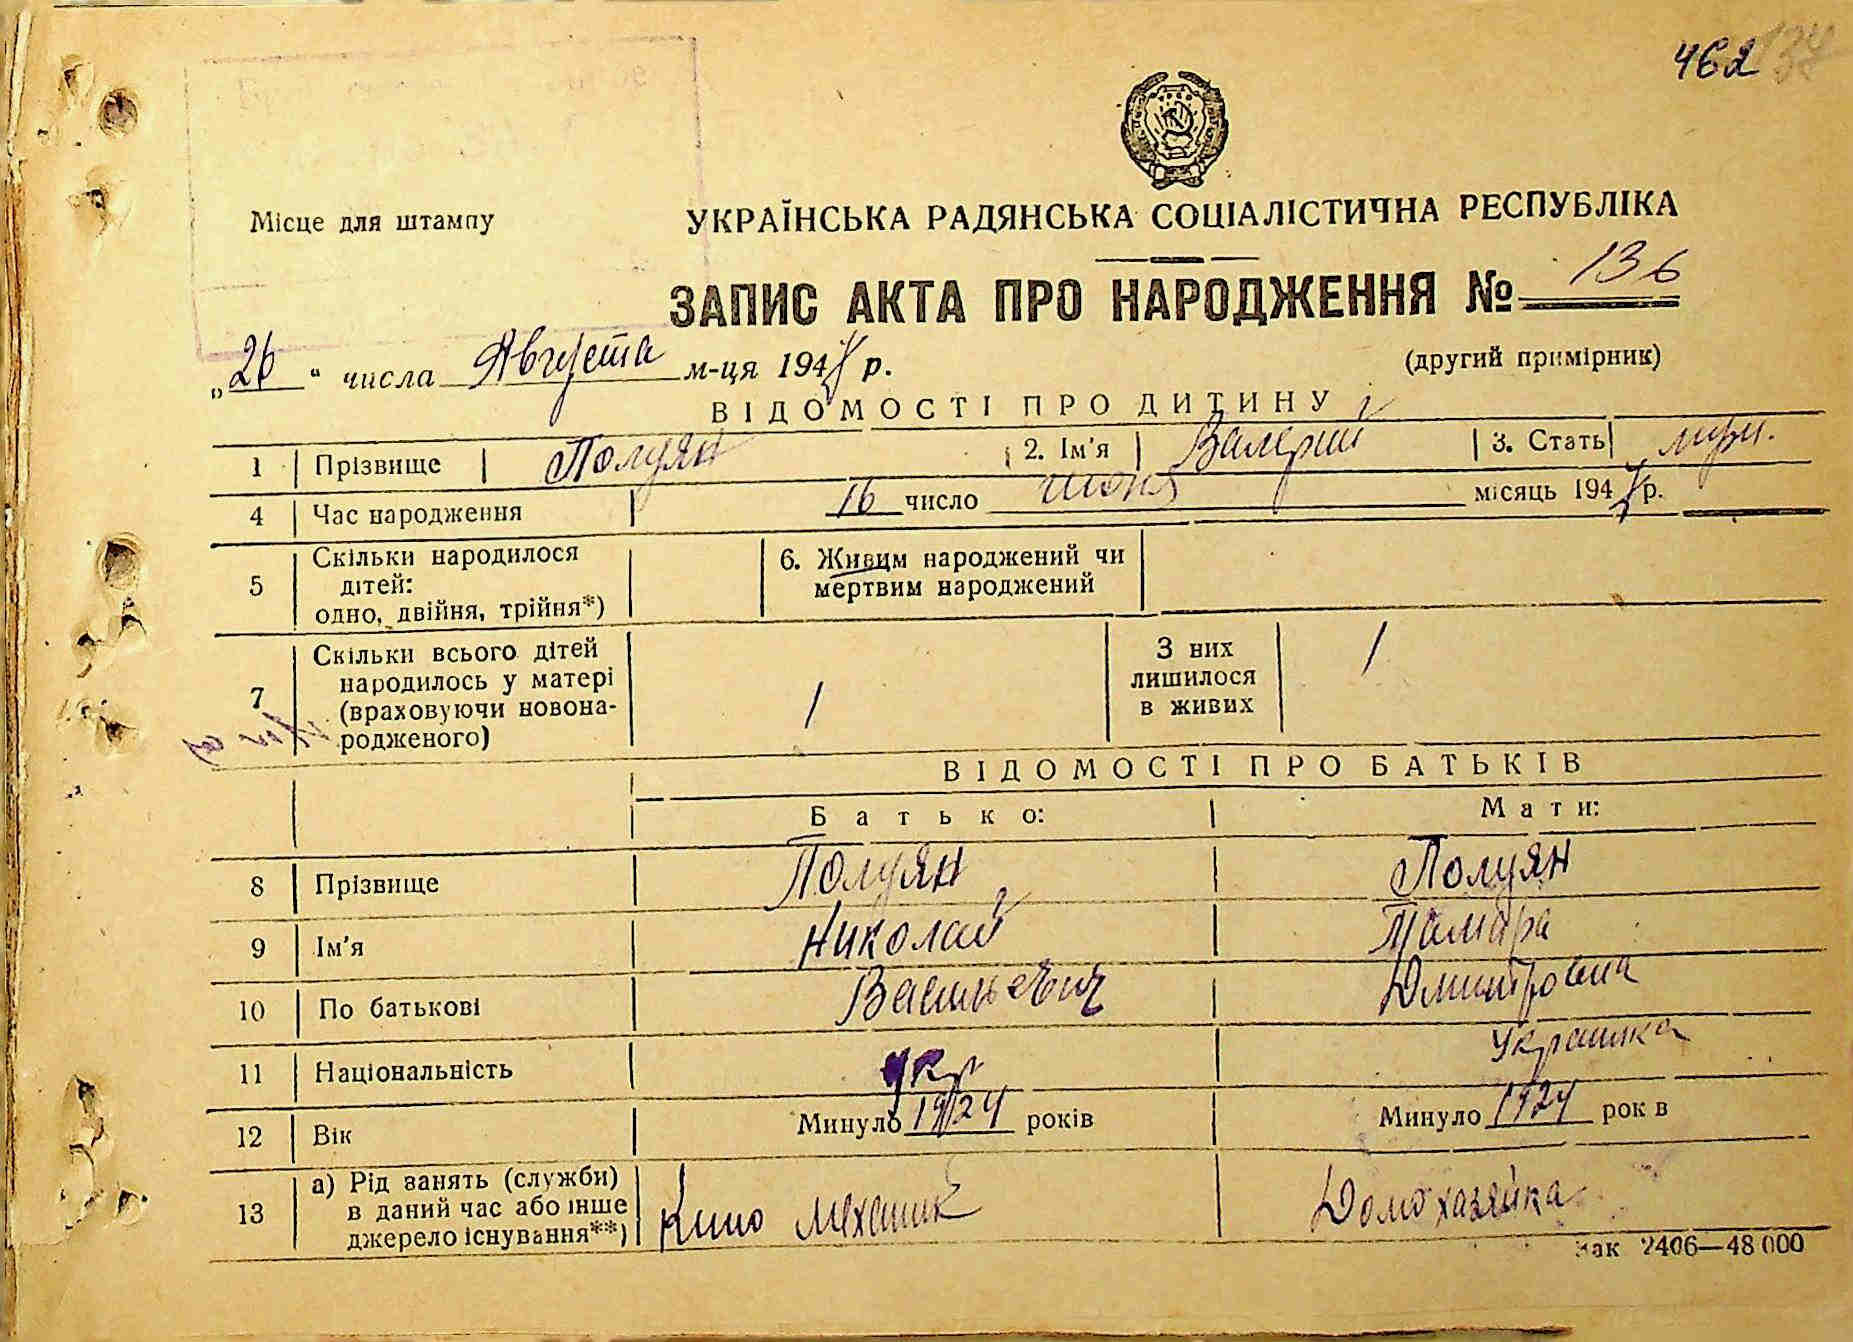 462
Місце для штампу
УКРАЇНСЬКА РАДЯНСЬКА СОЦІАЛІСТИЧНА РЕСПУБЛІКА
ЗАПИС АКТА ПРО НАРОДЖЕННЯ № 136
„26“ числа Августа м-ця 1944 р.
(другий примірник)
ВІДОМОСТІ ПРО ДИТИНУ
1 Прізвище Полуян 2. Ім'я Валерий 3. Стать муж.
4 Час народження 16 число июня місяць 1944 р.
5 Скільки народилося дітей: одно, двійня, трійня*) 6. Живим народжений чи мертвим народжений
7 Скільки всього дітей народилось у матері (враховуючи новонародженого) 1 З них лишилося в живих 1
ВІДОМОСТІ ПРО БАТЬКІВ
Батько: Мати:
8 Прізвище Полуян Полуян
9 Ім'я Николай Тамара
10 По батькові Васильевич Дмитровна
11 Національність укр Украинка
12 Вік Минуло 1924 років Минуло 1924 рок в
13 а) Рід занять (служби) в даний час або інше джерело існування**) Кино механик Домохазяйка
Зак 2406—48 000